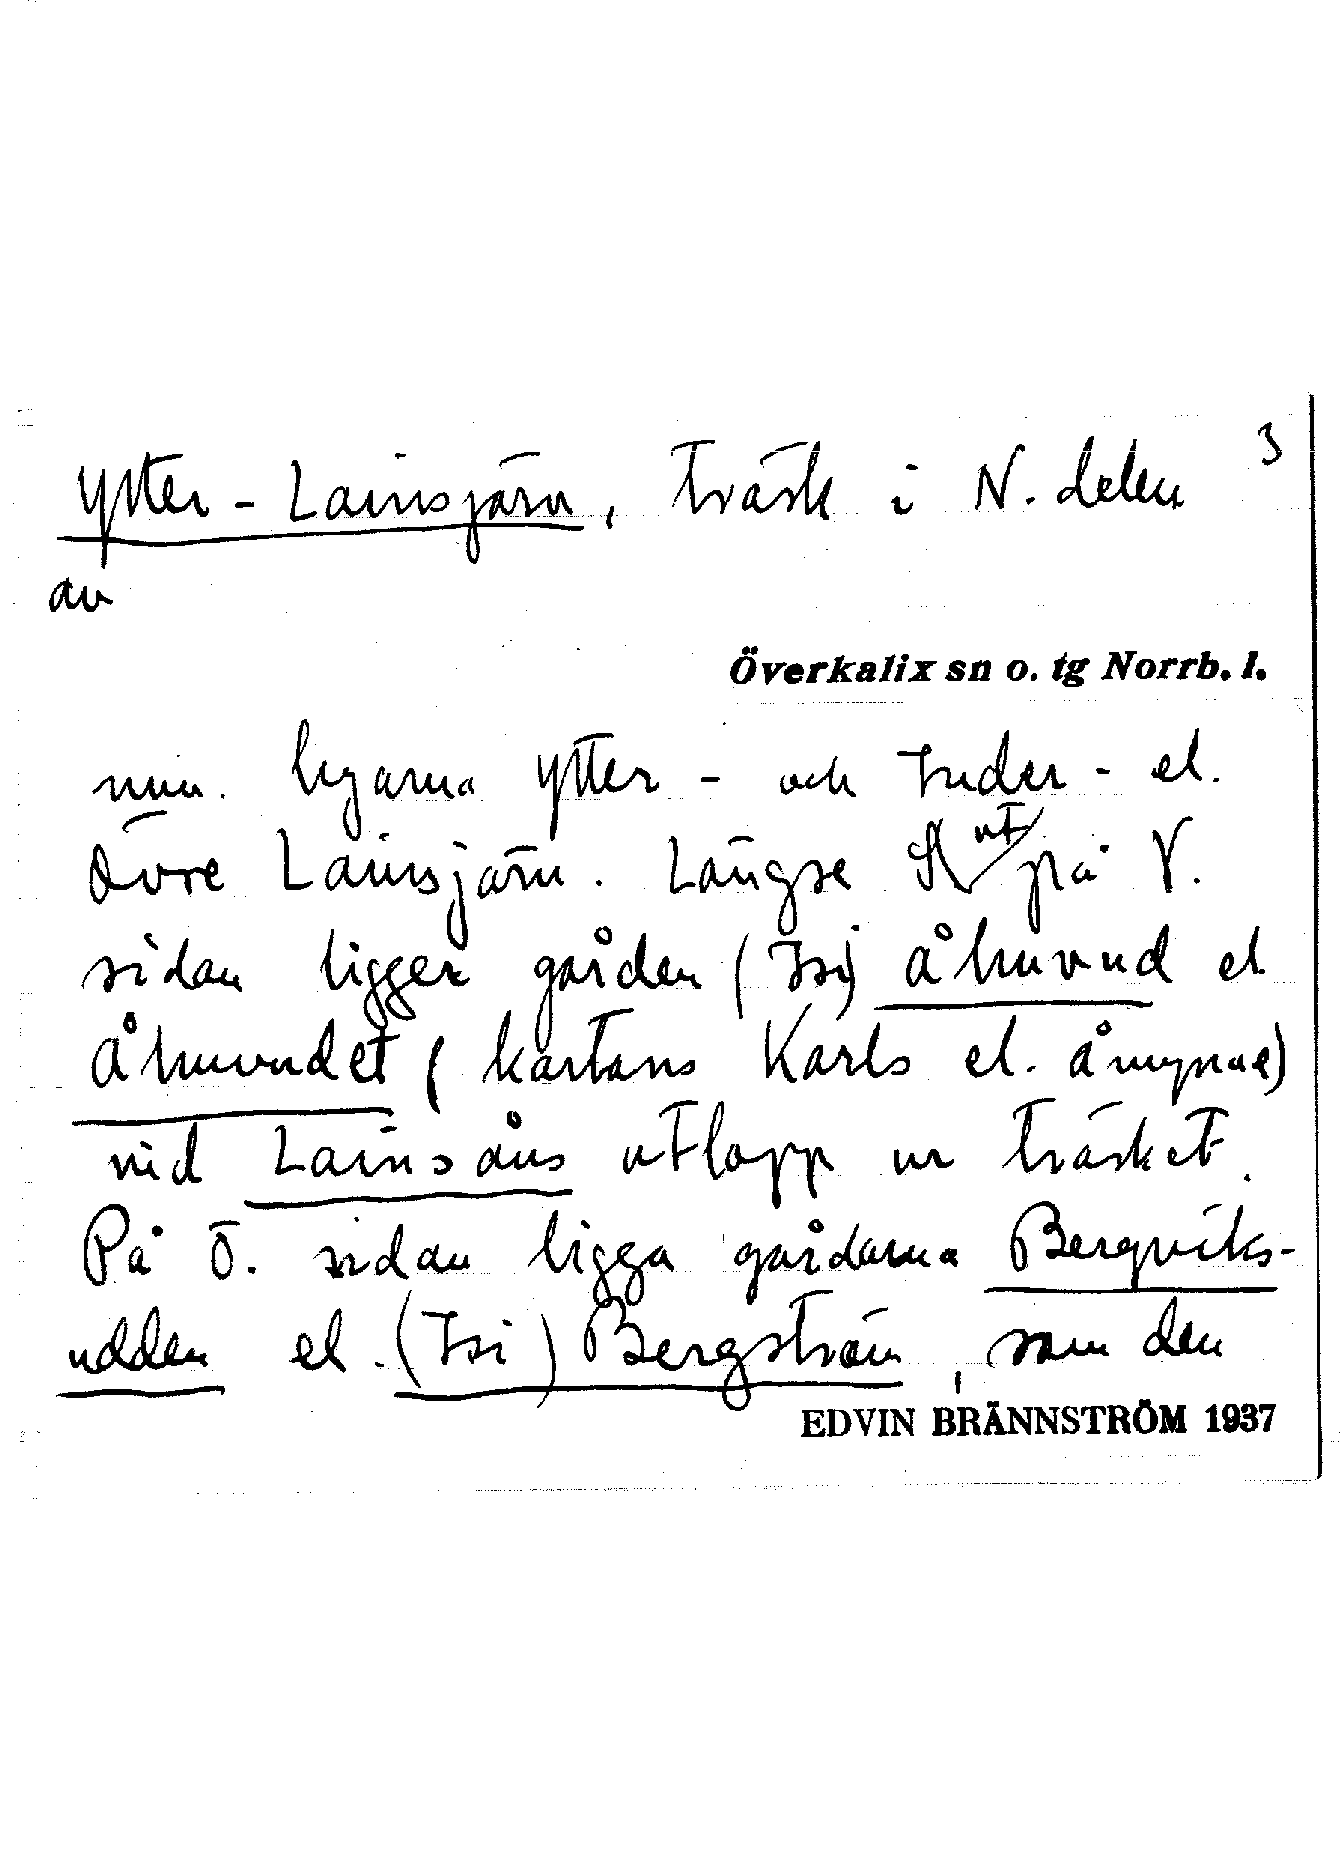 Ytter-Lainsjärv, träsk i N. delen 3
av
Överkalix sn o. tg Norrb. l.
mn. byarna Ytter- och Inder- el.
Övre Lainsjärv. Längse S ut på V.
sidan ligger gården (Isi) Åhuvud el
Åhuvudet (kartans Karls el. Åmynne)
vid Lainsåns utlopp ur träsket.
På Ö. sidan ligga gårdarna Bergviks-
udden el. (Isi) Bergström, som den
EDVIN BRÄNNSTRÖM 1937